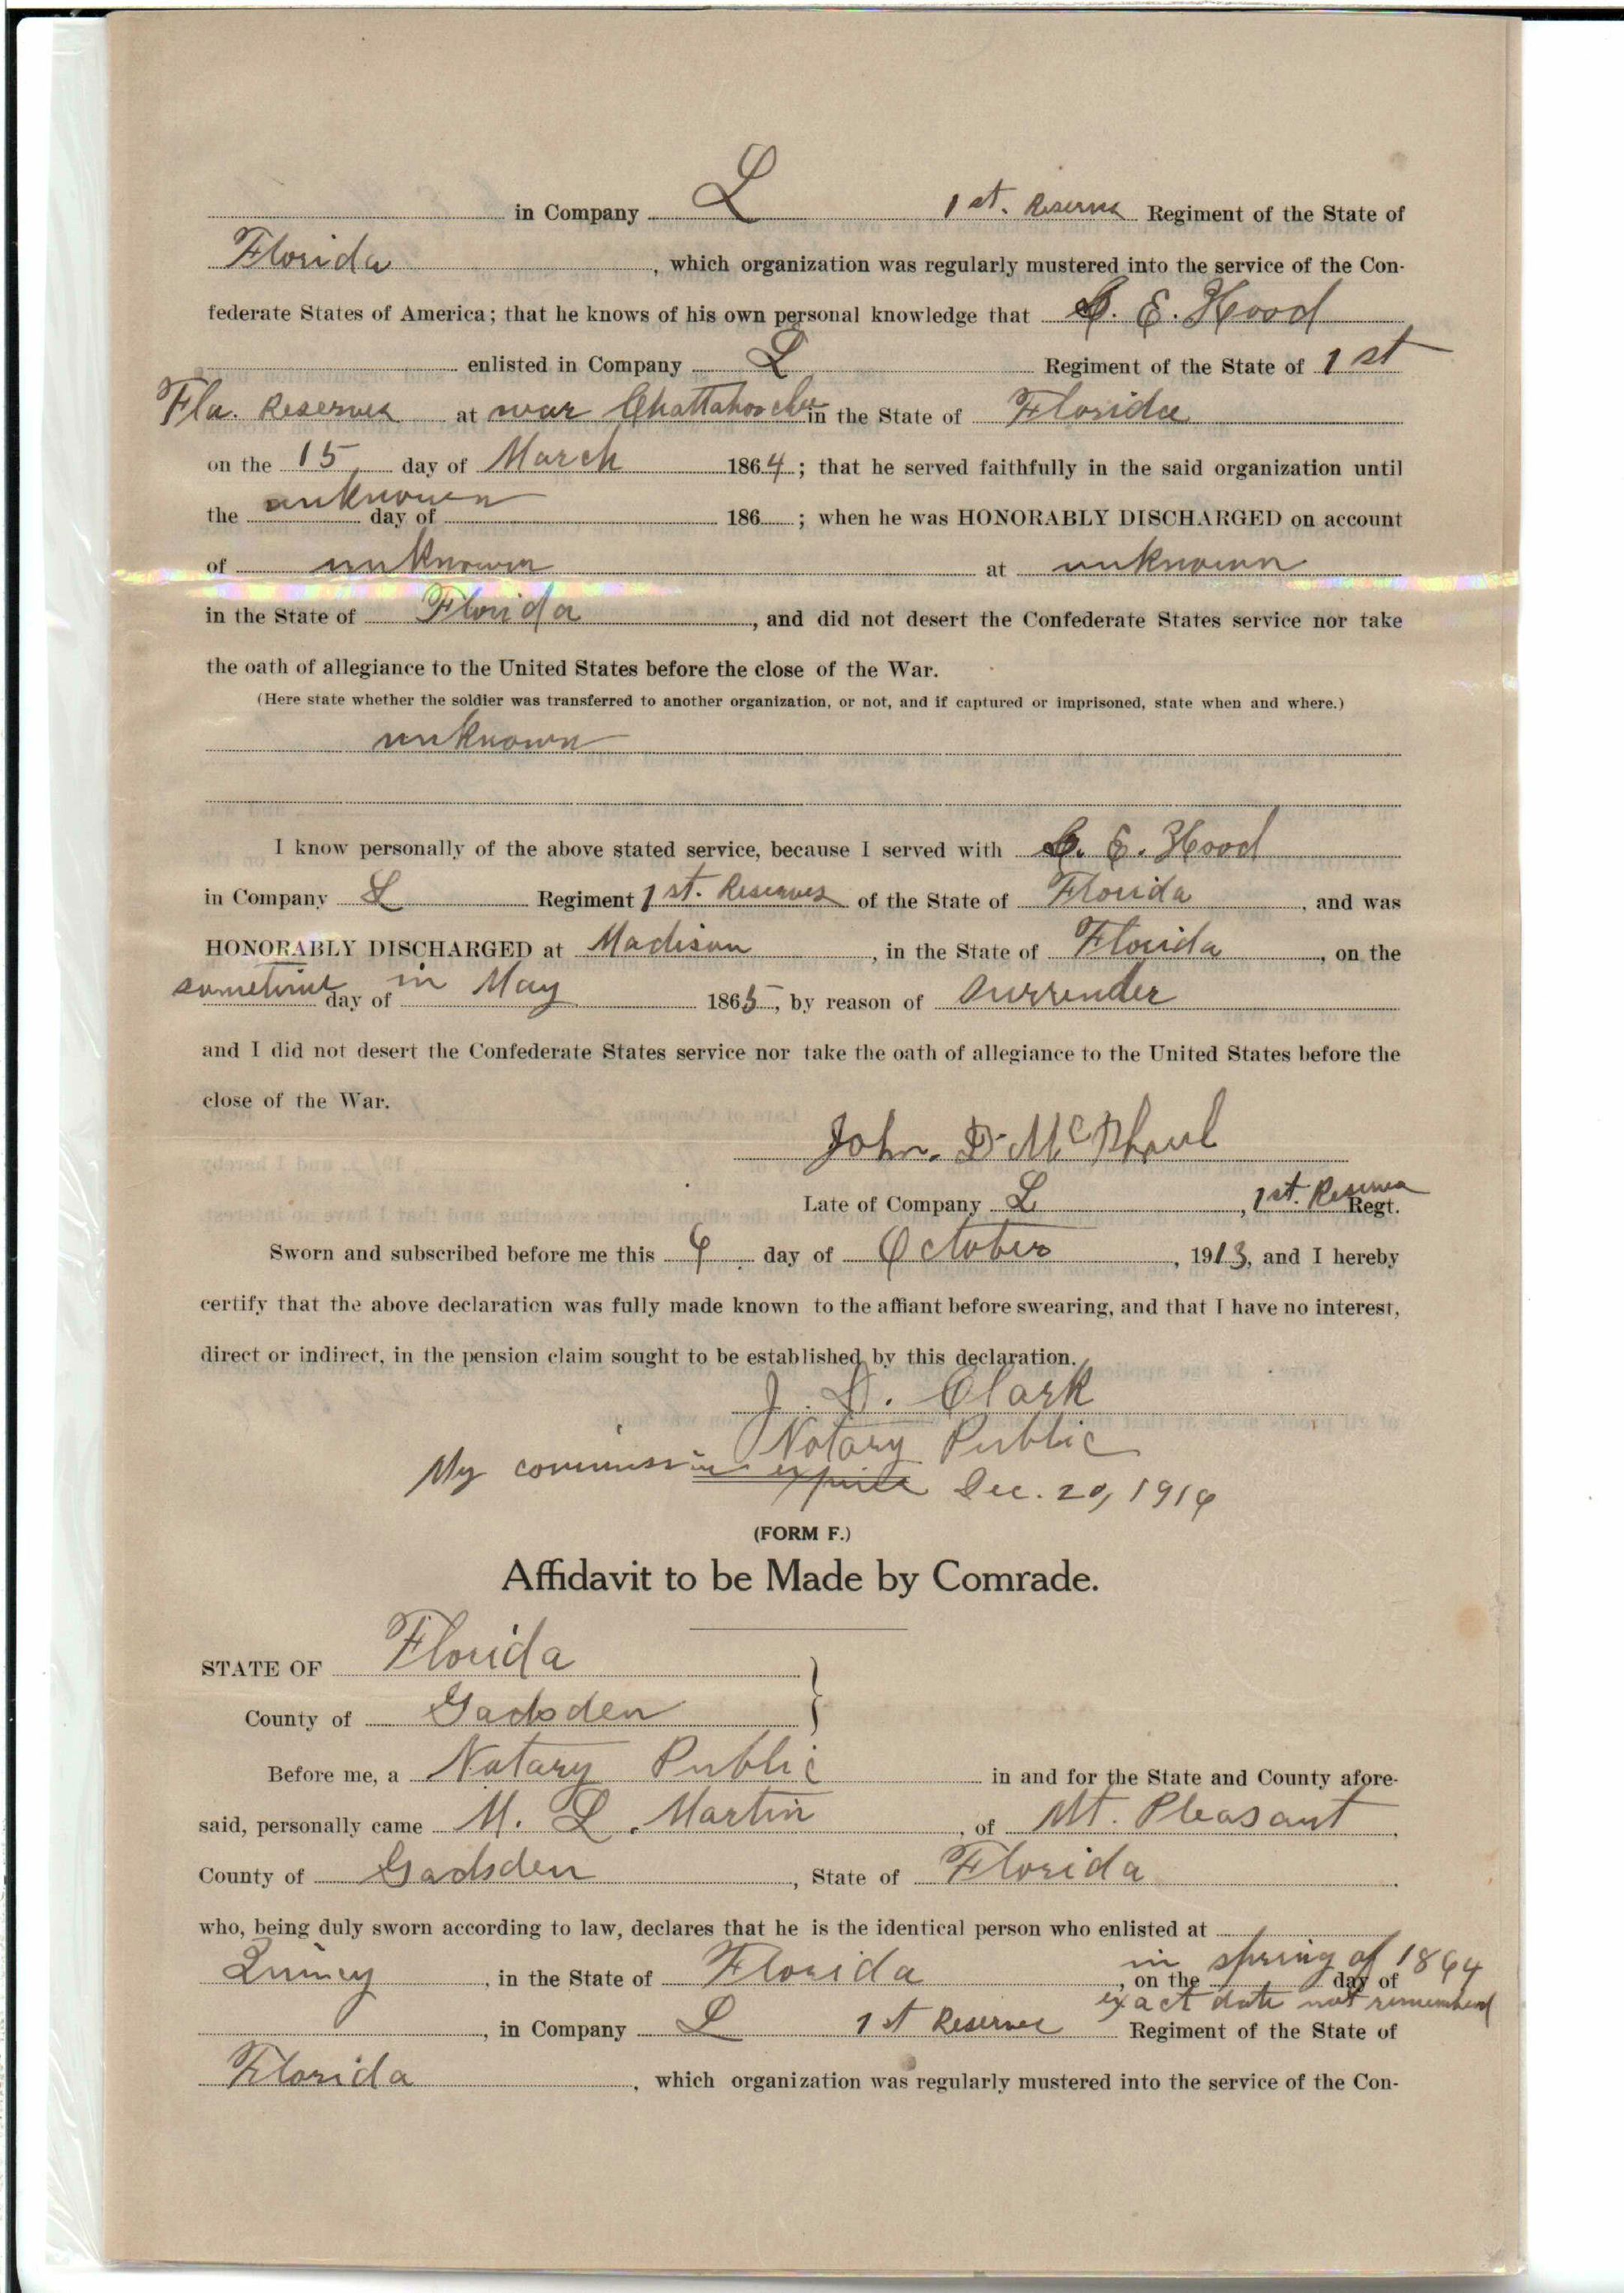 in Company L 1st. Reserve Regiment of the State of
Florida, which organization was regularly mustered into the service of the Con-
federate States of America; that he knows of his own personal knowledge that E. Hood
enlisted in Company L Regiment of the State of 1st
Fla. Reserves at near Chattahoochee in the State of Florida
on the 15 day of March 1864; that he served faithfully in the said organization until
the unknown day of 186 ; when he was HONORABLY DISCHARGED on account
of unknown at unknown
in the State of Florida, and did not desert the Confederate States service nor take
the oath of allegiance to the United States before the close of the War.
(Here state whether the soldier was transferred to another organization, or not, and if captured or imprisoned, state when and where.)
unknown
I know personally of the above stated service, because I served with E. Hood
in Company L Regiment 1st. Reserves of the State of Florida, and was
HONORABLY DISCHARGED at Madison, in the State of Florida, on the
sometime day of in May 1865, by reason of Surrender
and I did not desert the Confederate States service nor take the oath of allegiance to the United States before the
close of the War.
John. D. McPhaul
Late of Company L, 1st. Reserve Regt.
Sworn and subscribed before me this day of October, 1913, and I hereby
certify that the above declaration was fully made known to the affiant before swearing, and that I have no interest,
direct or indirect, in the pension claim sought to be established by this declaration.
J. D. Clark
Notary Public
My commission expires Dec. 20, 1916
(FORM F.)
Affidavit to be Made by Comrade.
STATE OF Florida }
County of Gadsden
Before me, a Notary Public in and for the State and County afore-
said, personally came M. L. Martin, of Mt. Pleasant,
County of Gadsden, State of Florida.
who, being duly sworn according to law, declares that he is the identical person who enlisted at
Quincy, in the State of Florida, on the in spring of 1864 day of
exact date not remembered
, in Company L 1st Reserve Regiment of the State of
Florida, which organization was regularly mustered into the service of the Con-